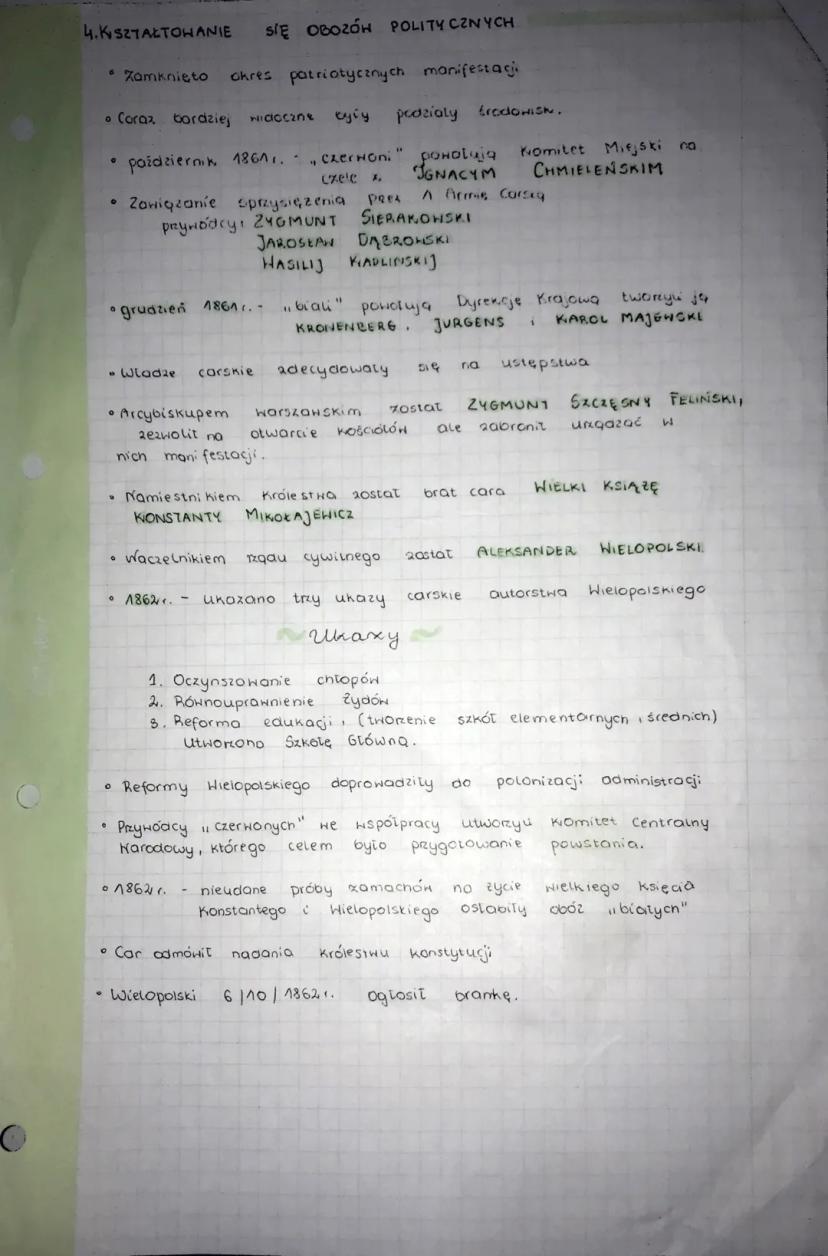 4. KSZTAŁTOWANIE SIĘ OBOZÓW POLITYCZNYCH
• Zamknięto okres patriotycznych manifestacji
• Coraz bardziej widoczne były podziały środowisk.
• październik 1861r. - „czerwoni" powołują Komitet Miejski na
czele z. IGNACYM CHMIELEŃSKIM
• Zawiązanie sprzysiężenia Armię Carską
przywódcy: ZYGMUNT SIERAKOWSKI
JAROSŁAW DĄBROWSKI
WASILIJ KAPLINSKIJ
• grudzień 1861r. - „biali" powołują Dyrekcję Krajową tworzyli ją
KRONENBERG, JURGENS i KAROL MAJEWSKI
• Władze carskie zdecydowały się na ustępstwa
• Arcybiskupem warszawskim został ZYGMUNT SZCZĘSNY FELIŃSKI,
zezwolił na otwarcie kościołów ale zabronił urządzać w
nich manifestacji.
• Namiestnikiem Królestwa został brat cara WIELKI KSIĄŻĘ
KONSTANTY MIKOŁAJEWICZ
• Naczelnikiem rządu cywilnego został ALEKSANDER WIELOPOLSKI.
• 1862r. - ukazano trzy ukazy carskie autorstwa Wielopolskiego
~ Ukazy ~
1. Oczynszowanie chłopów
2. Równouprawnienie Żydów
3. Reforma edukacji, (tworzenie szkół elementarnych i średnich)
Utworzono Szkołę Główną.
• Reformy Wielopolskiego doprowadziły do polonizacji administracji
• Przywódcy „czerwonych" we współpracy utworzyli Komitet Centralny
Narodowy, którego celem było przygotowanie powstania.
• 1862r. - nieudane próby zamachów na życie wielkiego księcia
Konstantego i Wielopolskiego osłabiły obóz „białych"
• Car odmówił nadania Królestwu konstytucji
• Wielopolski 6/10/1862r. ogłosił brankę.